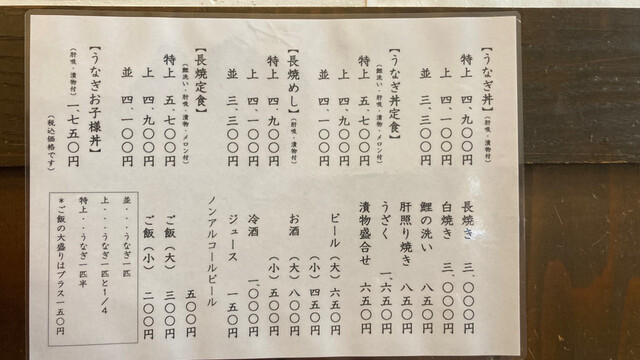 【うなぎ丼】（肝吸・漬物付）
特上 四、九〇〇円
上 四、一〇〇円
並 三、三〇〇円
【うなぎ丼定食】
（鯉洗い・肝吸・漬物・メロン付）
特上 五、七〇〇円
上 四、九〇〇円
並 四、一〇〇円
【長焼めし】（肝吸・漬物付）
特上 四、九〇〇円
上 四、一〇〇円
並 三、三〇〇円
【長焼定食】
（鯉洗い・肝吸・漬物・メロン付）
特上 五、七〇〇円
上 四、九〇〇円
並 四、一〇〇円
【うなぎお子様丼】
（肝吸・漬物付）一、七五〇円
（税込価格です）
長焼き 三、〇〇〇円
白焼き 三、〇〇〇円
鯉の洗い 八五〇円
肝照り焼き 八五〇円
うざく 一、六五〇円
漬物盛合せ 六五〇円
ビール（大）六五〇円
（小）四五〇円
お酒（大）八〇〇円
（小）五〇〇円
冷酒 一、〇〇〇円
ジュース 一五〇円
ノンアルコールビール
五〇〇円
ご飯（大）三〇〇円
ご飯（小）二〇〇円
並・・・うなぎ一匹
上・・・うなぎ一匹と1/4
特上・・うなぎ一匹半
*ご飯の大盛りはプラス一五〇円